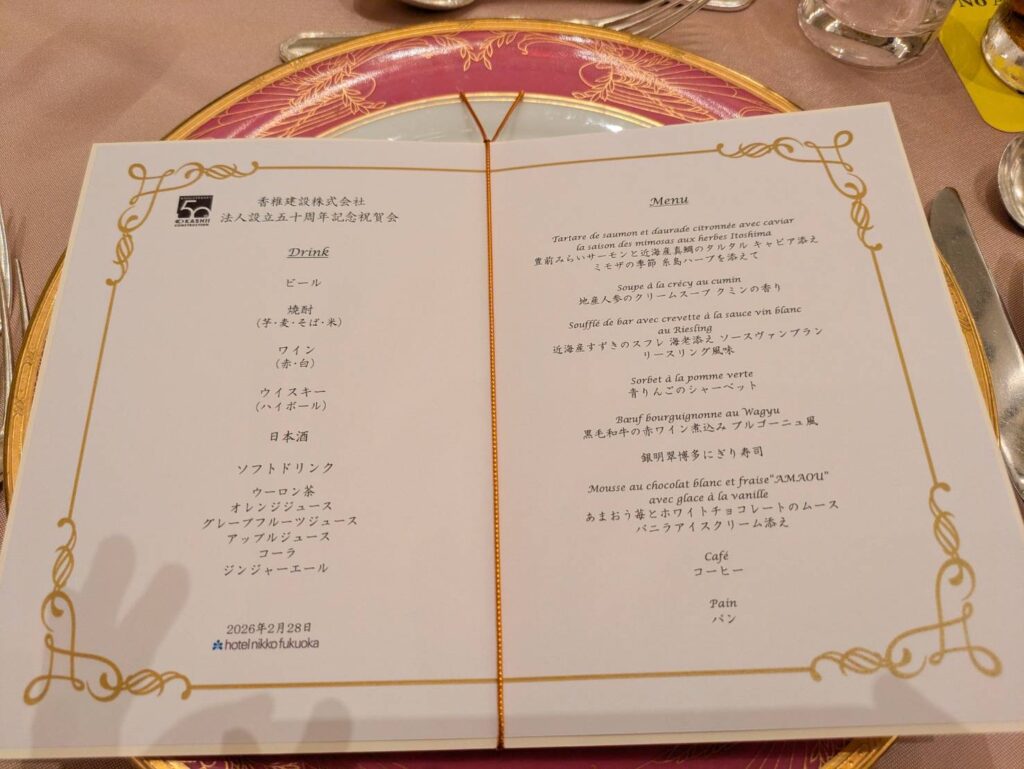 50
KASHII
CONSTRUCTION
香椎建設株式会社
法人設立五十周年記念祝賀会
Drink
ビール
焼酎
(芋・麦・そば・米)
ワイン
(赤・白)
ウイスキー
(ハイボール)
日本酒
ソフトドリンク
ウーロン茶
オレンジジュース
グレープフルーツジュース
アップルジュース
コーラ
ジンジャーエール
2026年2月28日
hotel nikko fukuoka
Menu
Tartare de saumon et daurade citronnée avec caviar
la saison des mimosas aux herbes Itoshima
豊前みらいサーモンと近海産真鯛のタルタル キャビア添え
ミモザの季節 糸島ハーブを添えて
Soupe à la crécy au cumin
地産人参のクリームスープ クミンの香り
Soufflé de bar avec crevette à la sauce vin blanc
au Riesling
近海産すずきのスフレ 海老添え ソースヴァンブラン
リースリング風味
Sorbet à la pomme verte
青りんごのシャーベット
Bœuf bourguignonne au Wagyu
黒毛和牛の赤ワイン煮込み ブルゴーニュ風
銀明翠博多にぎり寿司
Mousse au chocolat blanc et fraise"AMAOU"
avec glace à la vanille
あまおう苺とホワイトチョコレートのムース
バニラアイスクリーム添え
Café
コーヒー
Pain
パン